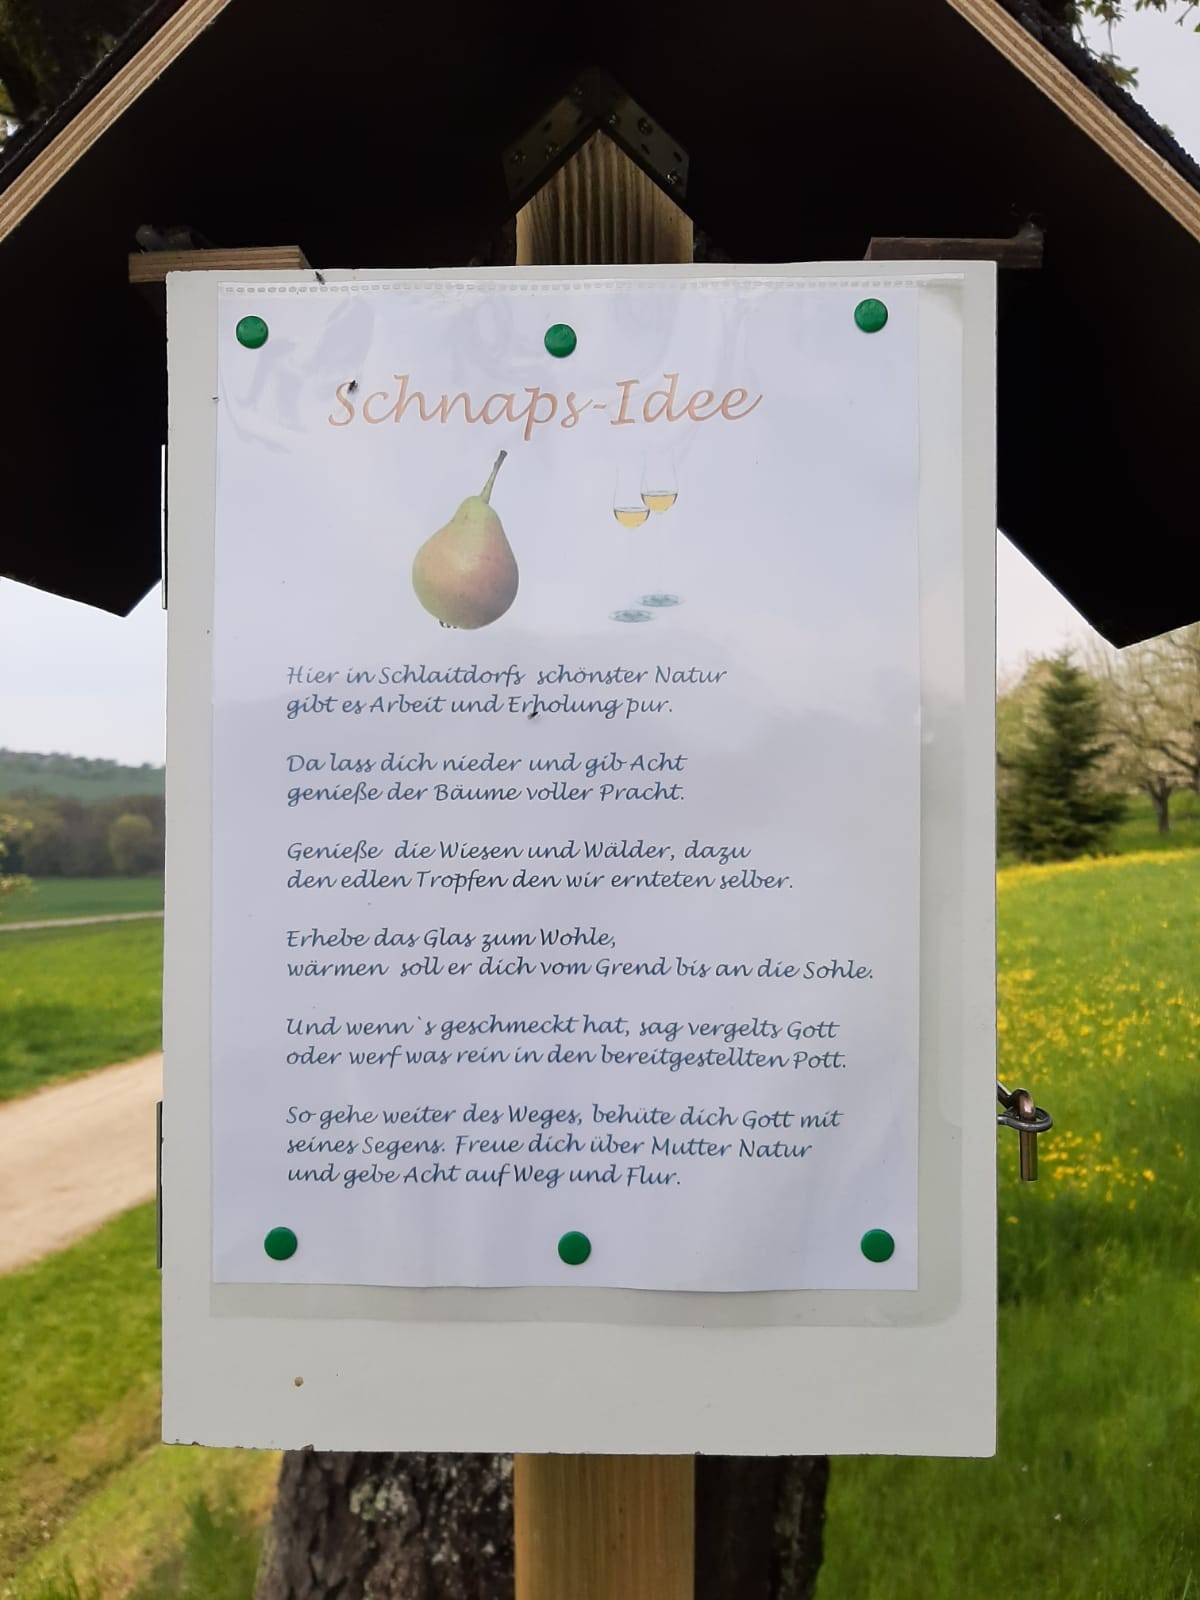 Schnaps-Idee
Hier in Schlaitdorfs schönster Natur
gibt es Arbeit und Erholung pur.
Da lass dich nieder und gib Acht
genieße der Bäume voller Pracht.
Genieße die Wiesen und Wälder, dazu
den edlen Tropfen den wir ernteten selber.
Erhebe das Glas zum Wohle,
wärmen soll er dich vom Grend bis an die Sohle.
Und wenn`s geschmeckt hat, sag vergelts Gott
oder werf was rein in den bereitgestellten Pott.
So gehe weiter des Weges, behüte dich Gott mit
seines Segens. Freue dich über Mutter Natur
und gebe Acht auf Weg und Flur.